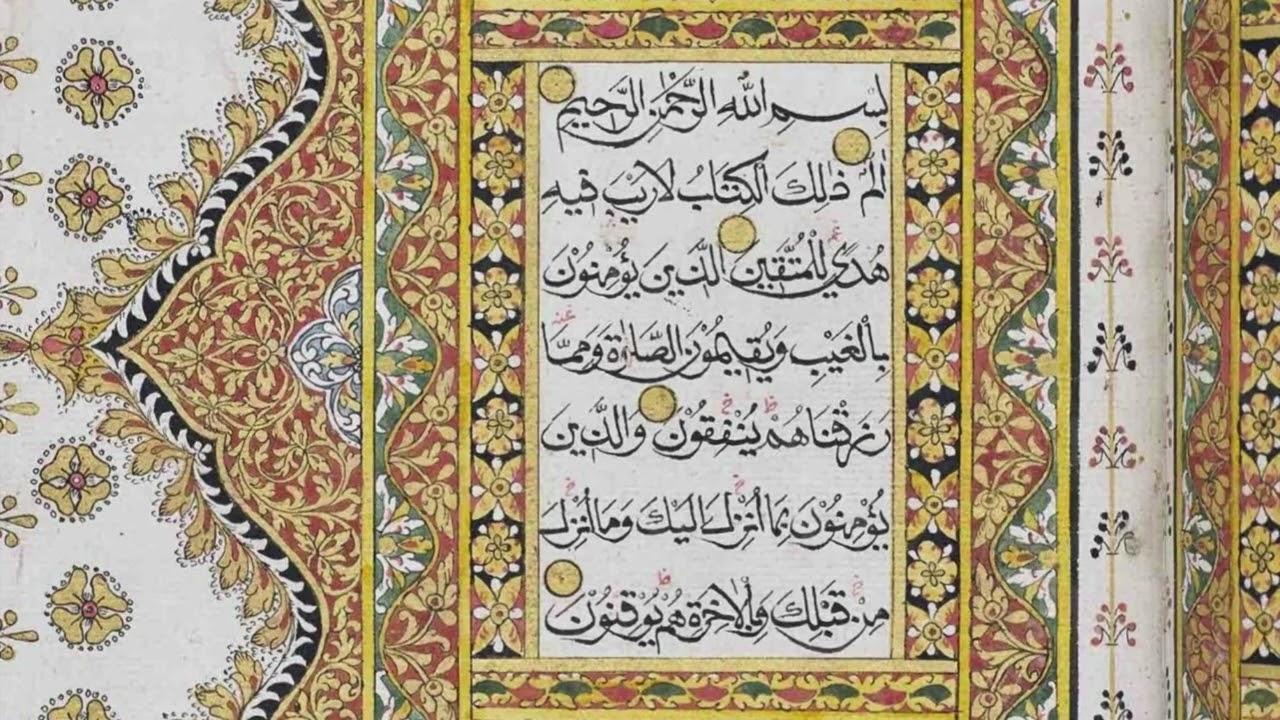 بِسْمِ اللّٰهِ الرَّحْمٰنِ الرَّحِيْمِ
الٓمّٓ ذٰلِكَ الْكِتَابُ لَا رَيْبَ فِيْهِ
هُدًي لِلْمُتَّقِيْنَ الَّذِيْنَ يُؤْمِنُوْنَ
بِالْغَيْبِ وَيُقِيْمُوْنَ الصَّلٰوةَ وَمِمَّا
رَزَقْنَاهُمْ يُنْفِقُوْنَ وَالَّذِيْنَ
يُؤْمِنُوْنَ بِمَا اُنْزِلَ اِلَيْكَ وَمَا اُنْزِلَ
مِنْ قَبْلِكَ وَبِالْاٰخِرَةِ هُمْ يُوْقِنُوْنَ